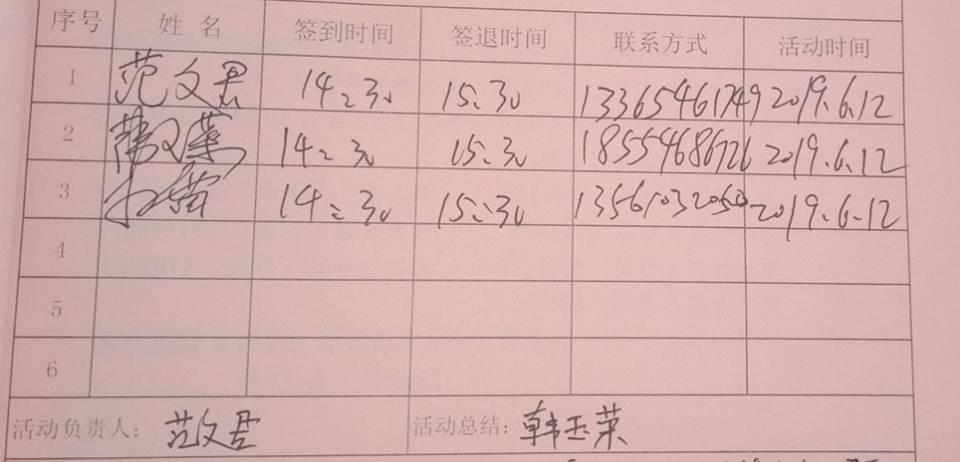 序号 姓名 签到时间 签退时间 联系方式 活动时间
1 范文君 14:30 15:30 13365461749 2019.6.12
2 14:30 15:30 18554686726 2019.6.12
3 14:30 15:30 2019.6.12
4
5
6
活动负责人: 范文君 活动总结: 韩玉荣